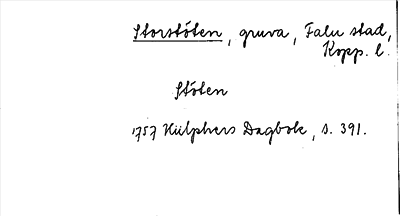 Storstöten, gruva, Falu stad,
Kopp. l.
Stöten
1757 Hülphers Dagbok, s. 391.